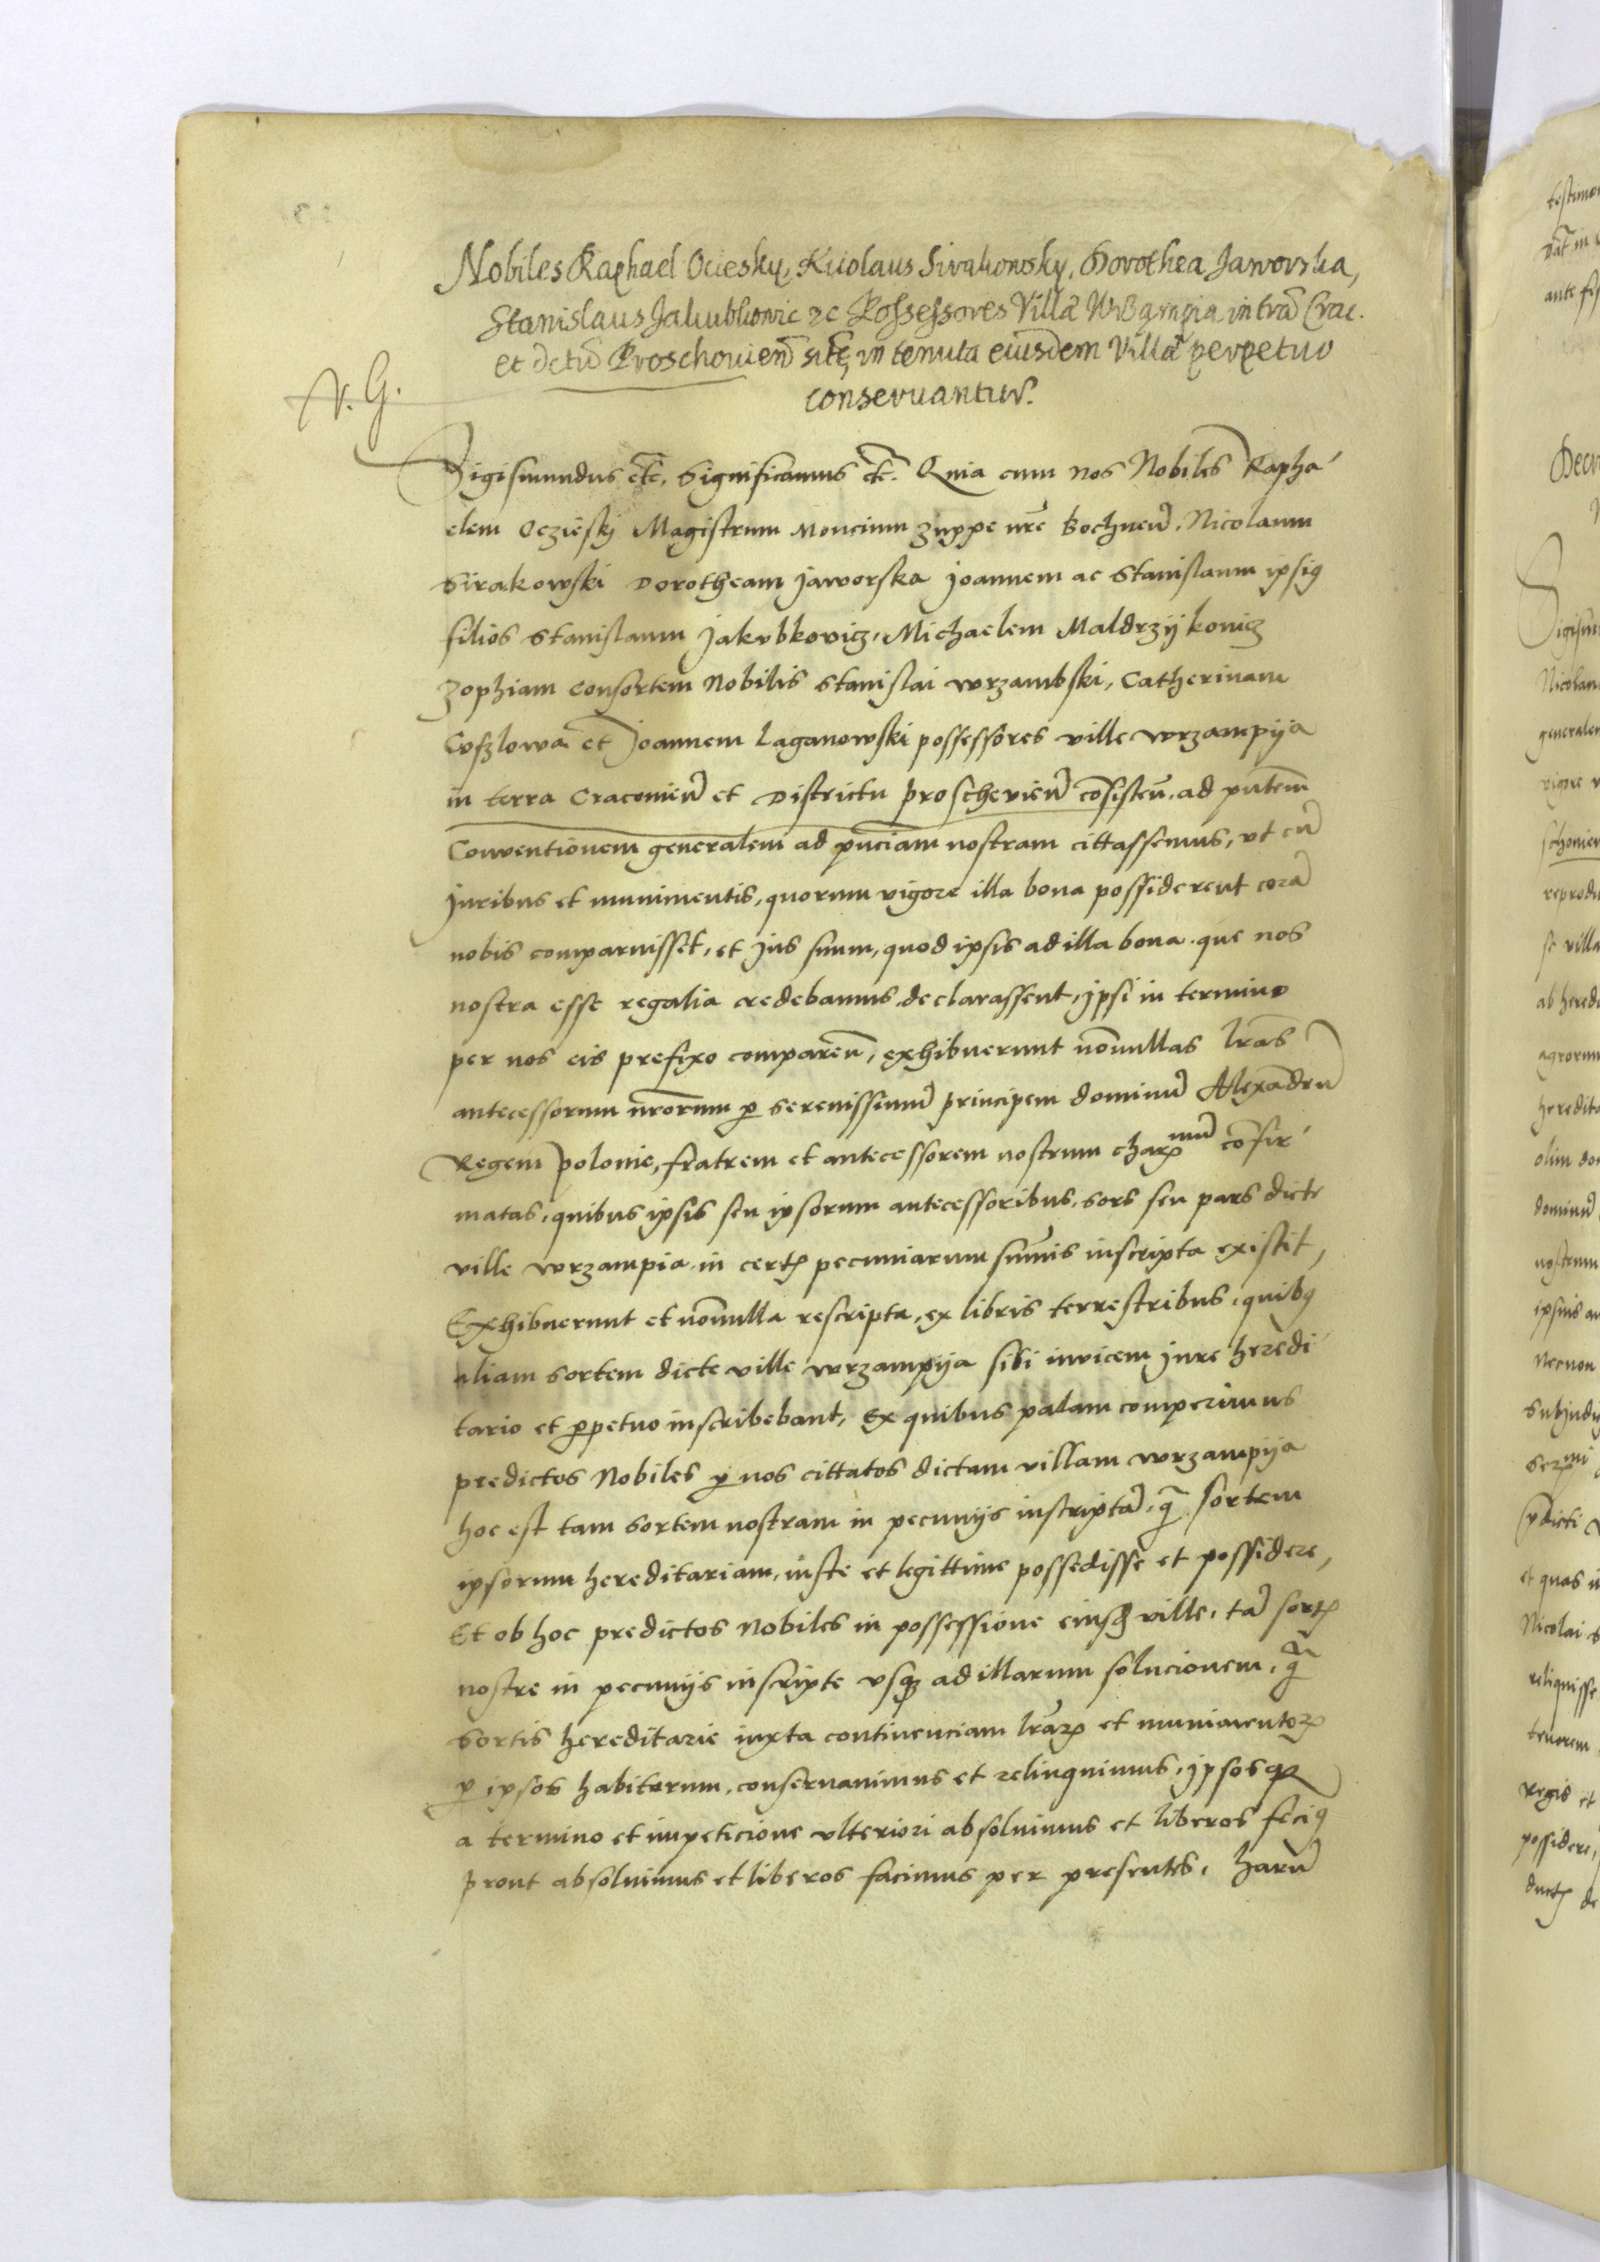 Nobiles Raphael Ociesky, Nicolaus Sirakowsky, Dorothea Jaworska,
Stanislaus Jakubkowic ꝛc Possessores Villæ Wrzampia in tra͞ Crac.
et dctu͞ Proschouien͞ site͞, in tenuta eiusdem Villæ perpetuo
conseruantur.
N. G.
Sigismundus etc. Significamus etc. Quia cum nos Nobiles Rapha
elem Oczieskj Magistrum Moncium zuppe nr͞e Bochnen͞. Nicolaum
Sirakowski Dorotheam Jaworska Joannem ac Stanislaum ipsiꝯ
filios Stanislaum Jakubkovicz, Michaelem Maldrzÿkovicz
Zophiam consortem Nobilis Stanislai Wrzambski, Catherinam
et Joannem Laganowski possessores ville Wrzampÿa
in terra Cracouien͞ et Districtu proschevien͞ co͞sisten͞. ad pn͞tem
Conventionem generalem ad pn͞ciam nostram cittassemus, vt cu͞
Juribus et munimentis, quorum vigore illa bona possiderent cora͞
nobis comparuissēt, et Jus suum, quod ipsis ad illa bona. que nos
nostra esse regalia credebamus, declarassent, ipsi in termino
per nos eis prefixo comparen͞, exhibuerunt no͞nullas lr͞as
antecessorum nr͞orum ꝑ serenissimu͞ principem dominu͞ Alexandru͞
Regem Polonie, fratrem et antecessorem nostrum charꝫmu͞ co͞fir
matas, quibus ipsis seu ipsorum antecessoribus, sors seu pars dicte
ville Wrzampia in certꝭ pecuniarum sum͞is inscripta existit,
Exhibuerunt et no͞nulla rescripta, ex libris terrestribus, quibꝯ
aliam sortem dicte ville Wrzampÿa sibi invicem Jure heredi
tario et ꝑpetuo inscribebant, Ex quibus palam comperimus
predictos Nobiles ꝑ nos cittatos dictam villam Wrzampÿa
hoc est tam sortem nostram in pecunijs inscripta͞, q͞ sortem
ipsorum hereditariam, iuste et legittime possedisse et possidere,
Et ob hoc predictos Nobiles in possessione eiusꝺ ville, ta͞ sortꝭ
nostre in pecunijs inscripte vsqꝫ ad illarum solucionem, q͞
sortis hereditarie iuxta continenciam lr͞aꝝ et munimentoꝝ
ꝑ ipsos habitorum, conseruauimus et relinquimus, ipsosqꝫ
a termino et impeticione vlteriori absoluimus et liberos feciꝯ
prout absoluimus et liberos facimus per presentes. haru͞